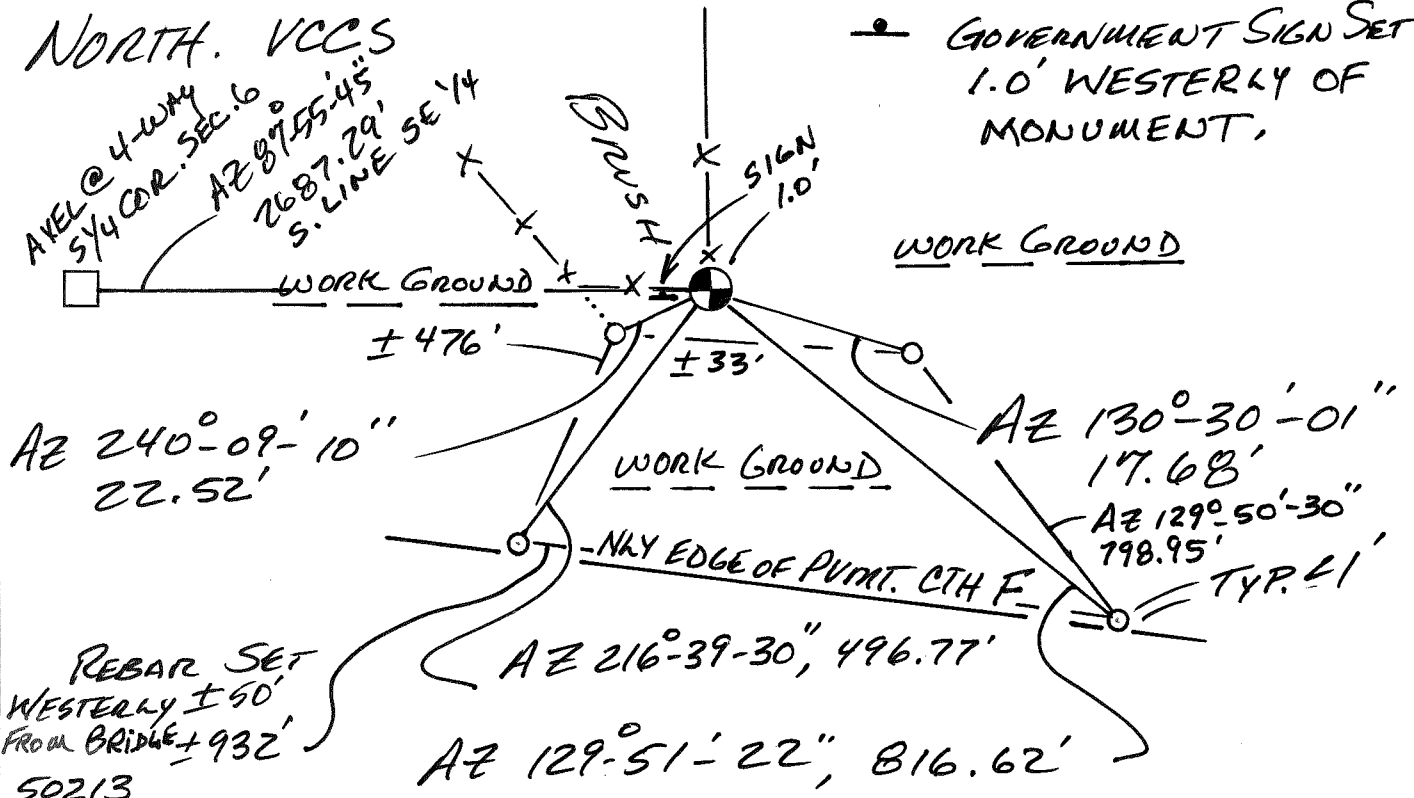 NORTH. VCCS
GOVERNMENT SIGN SET
1.0' WESTERLY OF
MONUMENT.
AXEL @ 4-WAY
S1/4 COR. SEC. 6
AZ 87°55'-45"
2687.29'
S. LINE SE 1/4
BRUSH
SIGN
1.0'
WORK GROUND
WORK GROUND
± 476'
± 33'
AZ 240°-09'-10"
22.52'
WORK GROUND
AZ 130°-30'-01"
17.68'
AZ 129°-50'-30"
798.95'
TYP. <1'
NLY EDGE OF PVMT. CTH F
AZ 216°-39-30", 496.77'
REBAR SET
WESTERLY ±50'
FROM BRIDGE ±932'
50213
AZ 129°-51'-22", 816.62'